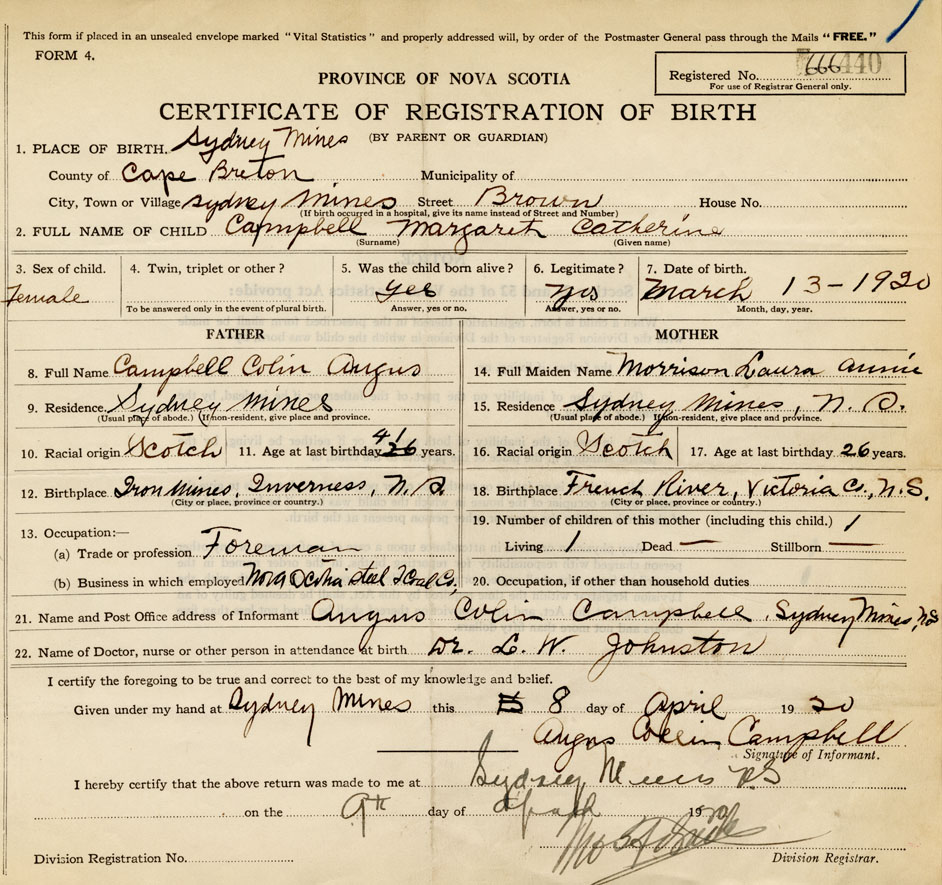 This form if placed in an unsealed envelope marked "Vital Statistics" and properly addressed will, by order of the Postmaster General pass through the Mails "FREE."
FORM 4.
PROVINCE OF NOVA SCOTIA
Registered No. 666440
For use of Registrar General only.
CERTIFICATE OF REGISTRATION OF BIRTH
(BY PARENT OR GUARDIAN)
1. PLACE OF BIRTH. Sydney Mines
County of Cape Breton Municipality of
City, Town or Village Sydney Mines Street Brown House No.
(If birth occurred in a hospital, give its name instead of Street and Number)
2. FULL NAME OF CHILD Campbell Margaret Catherine
(Surname) (Given name)
3. Sex of child. 4. Twin, triplet or other? 5. Was the child born alive? 6. Legitimate? 7. Date of birth.
Female yes yes March 13-1920
To be answered only in the event of plural birth. Answer, yes or no. Answer, yes or no. Month, day, year.
FATHER MOTHER
8. Full Name Campbell Colin Angus 14. Full Maiden Name Morrison Laura Annie
9. Residence. Sydney Mines 15. Residence Sydney Mines, N.S.
(Usual place of abode.) If non-resident, give place and province. (Usual place of abode.) If non-resident, give place and province.
10. Racial origin Scotch 11. Age at last birthday 41 26 years. 16. Racial origin Scotch 17. Age at last birthday 26 years.
12. Birthplace. Iron Mines, Inverness, N.S. 18. Birthplace French River, Victoria Co., N.S.
(City or place, province or country.) (City or place, province or country.)
13. Occupation:— 19. Number of children of this mother (including this child.) 1
(a) Trade or profession. Foreman Living 1 Dead — Stillborn —
(b) Business in which employed Nova Scotia Steel & Coal Co. 20. Occupation, if other than household duties
21. Name and Post Office address of Informant Angus Colin Campbell, Sydney Mines, N.S.
22. Name of Doctor, nurse or other person in attendance at birth Dr. L. W. Johnston
I certify the foregoing to be true and correct to the best of my knowledge and belief.
Given under my hand at Sydney Mines this 8 day of April 1920
Angus Colin Campbell
Signature of Informant.
I hereby certify that the above return was made to me at Sydney Mines NS
on the 9th day of April 1920
Division Registration No. Division Registrar.